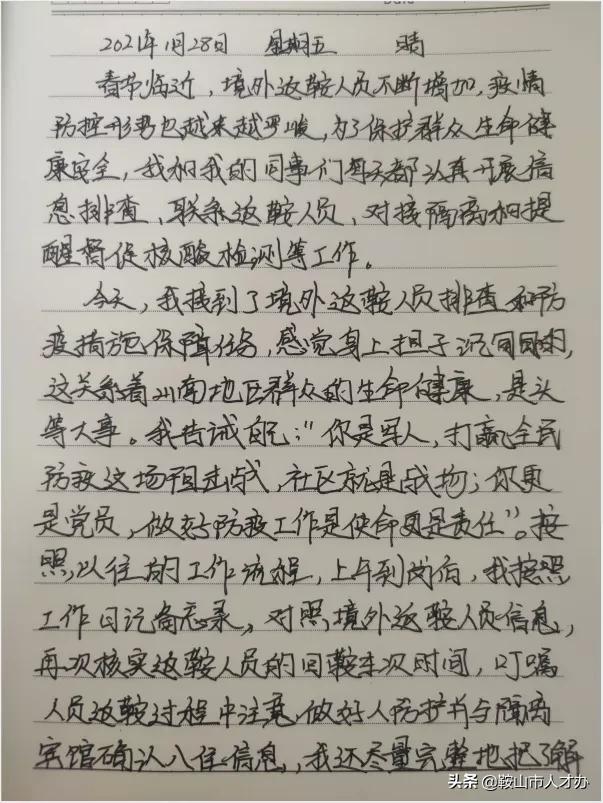 Date
2021年1月28日 星期五 晴
春节临近，境外返鞍人员不断增加，疫情
防控形势也越来越严峻，为了保护群众生命健
康安全，我和我的同事们每天都认真开展信
息排查、联系返鞍人员，对接隔离和提
醒督促核酸检测等工作。
今天，我接到了境外返鞍人员排查和防
疫措施保障任务，感觉身上担子沉甸甸的，
这关系着川南地区群众的生命健康，是头
等大事。我告诫自己："你是军人，打赢全民
防疫这场阻击战，社区就是战场；你更
是党员，做好防疫工作是使命更是责任"。按
照以往的工作流程，上午到岗后，我按照
工作日记备忘录，对照境外返鞍人员信息，
再次核实返鞍人员的回鞍车次时间，叮嘱
人员返鞍过程中注意做好人防护并与隔离
宾馆确认入住信息，我还尽量完整地把了解
头条 @鞍山市人才办